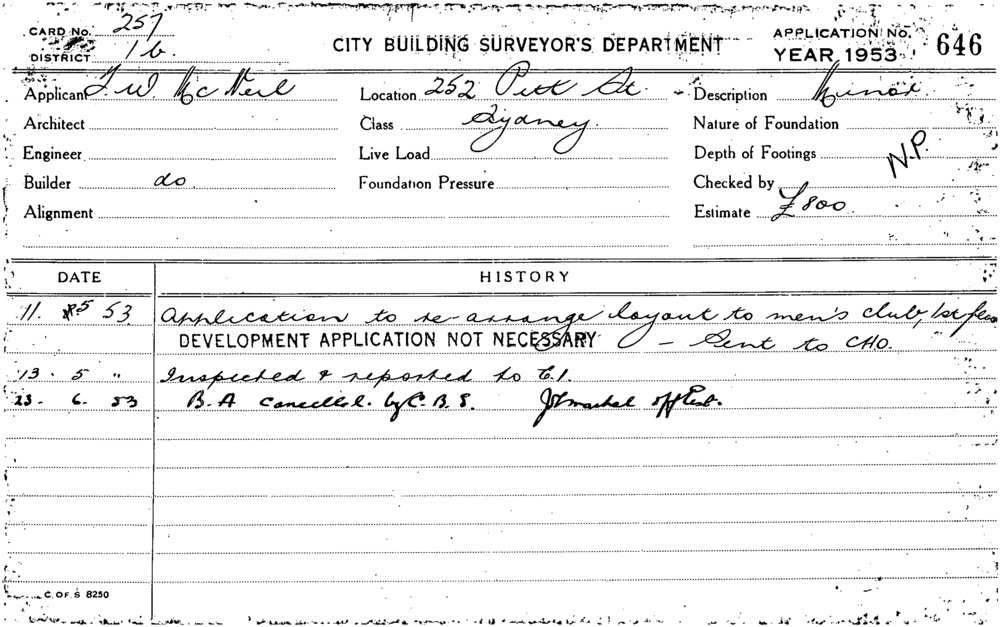 CARD No. 257
DISTRICT 1b.
CITY BUILDING SURVEYOR'S DEPARTMENT
APPLICATION No. 646
YEAR 1953
Applicant J. W McNeil Location 252 Pitt St. Description Minor
Architect Class Sydney. Nature of Foundation
Engineer Live Load Depth of Footings N.P.
Builder do Foundation Pressure Checked by
Alignment Estimate £800
DATE HISTORY
11. 5 53 Application to re-arrange layout to men's club, 1st floor
DEVELOPMENT APPLICATION NOT NECESSARY – Sent to CHO.
13 . 5 " Inspected & reported to C.I.
23 . 6. 53 B.A cancelled. by C.B.S.
C. OF. S 8250